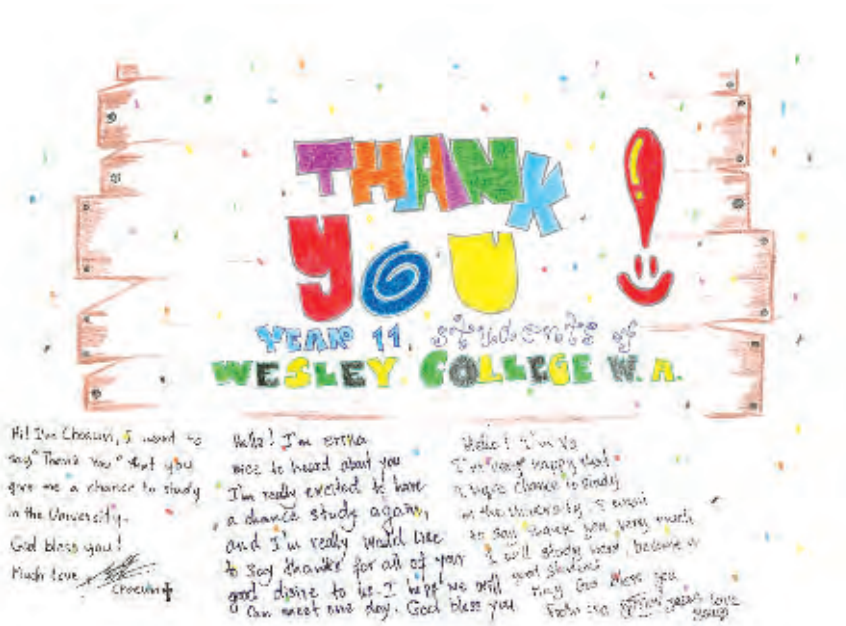 THANK
YOU!
YEAR 11, students of
WESLEY COLLEGE W.A.
Hi! I'm Choeun, I want to
say "Thank you" that you
give me a chance to study
in the University.
God bless you!
Much love
Choeun
Hello! I'm
nice to heard about you
I'm really excited to have
a chance study again,
and I'm really would like
to say thanks for all of your
good disire to us. I hope we will
Can meet one day. God bless you
Hello! I'm
I'm very happy that
I have chance to study
at the University. I want
to say thank you very much
I will study hard, become a
good student
May God bless you
From